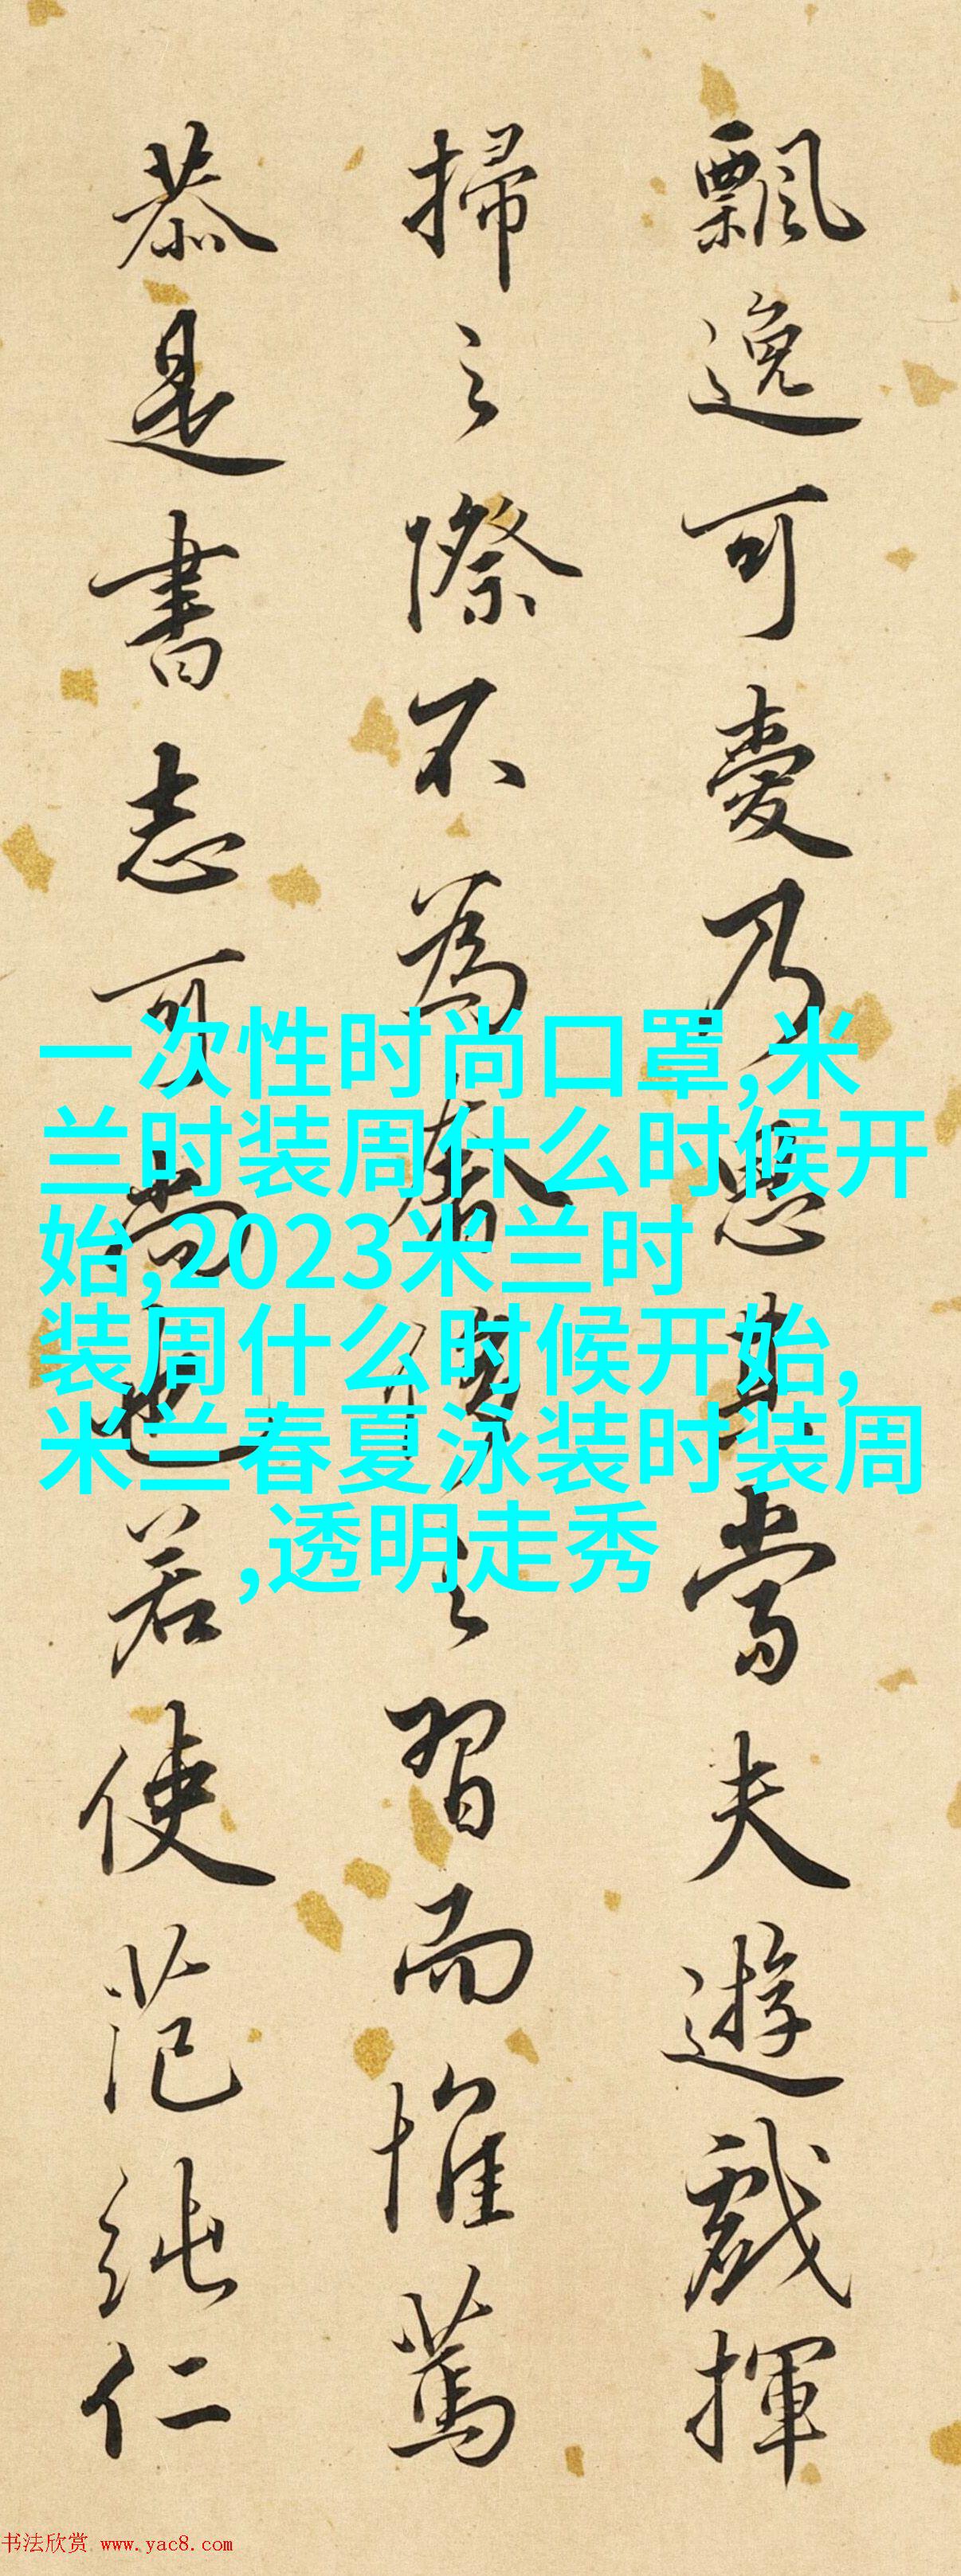 飄逸可愛乃思其當夫遊戲揮
掃之際不為之習而惟篤
恭是書志可尚也若使范純仁
一次性时尚口罩,米
兰时装周什么时候开
始,2023米兰时
装周什么时候开始,
米兰春夏泳装时装周
,透明走秀
书法欣赏 www.yac8.com